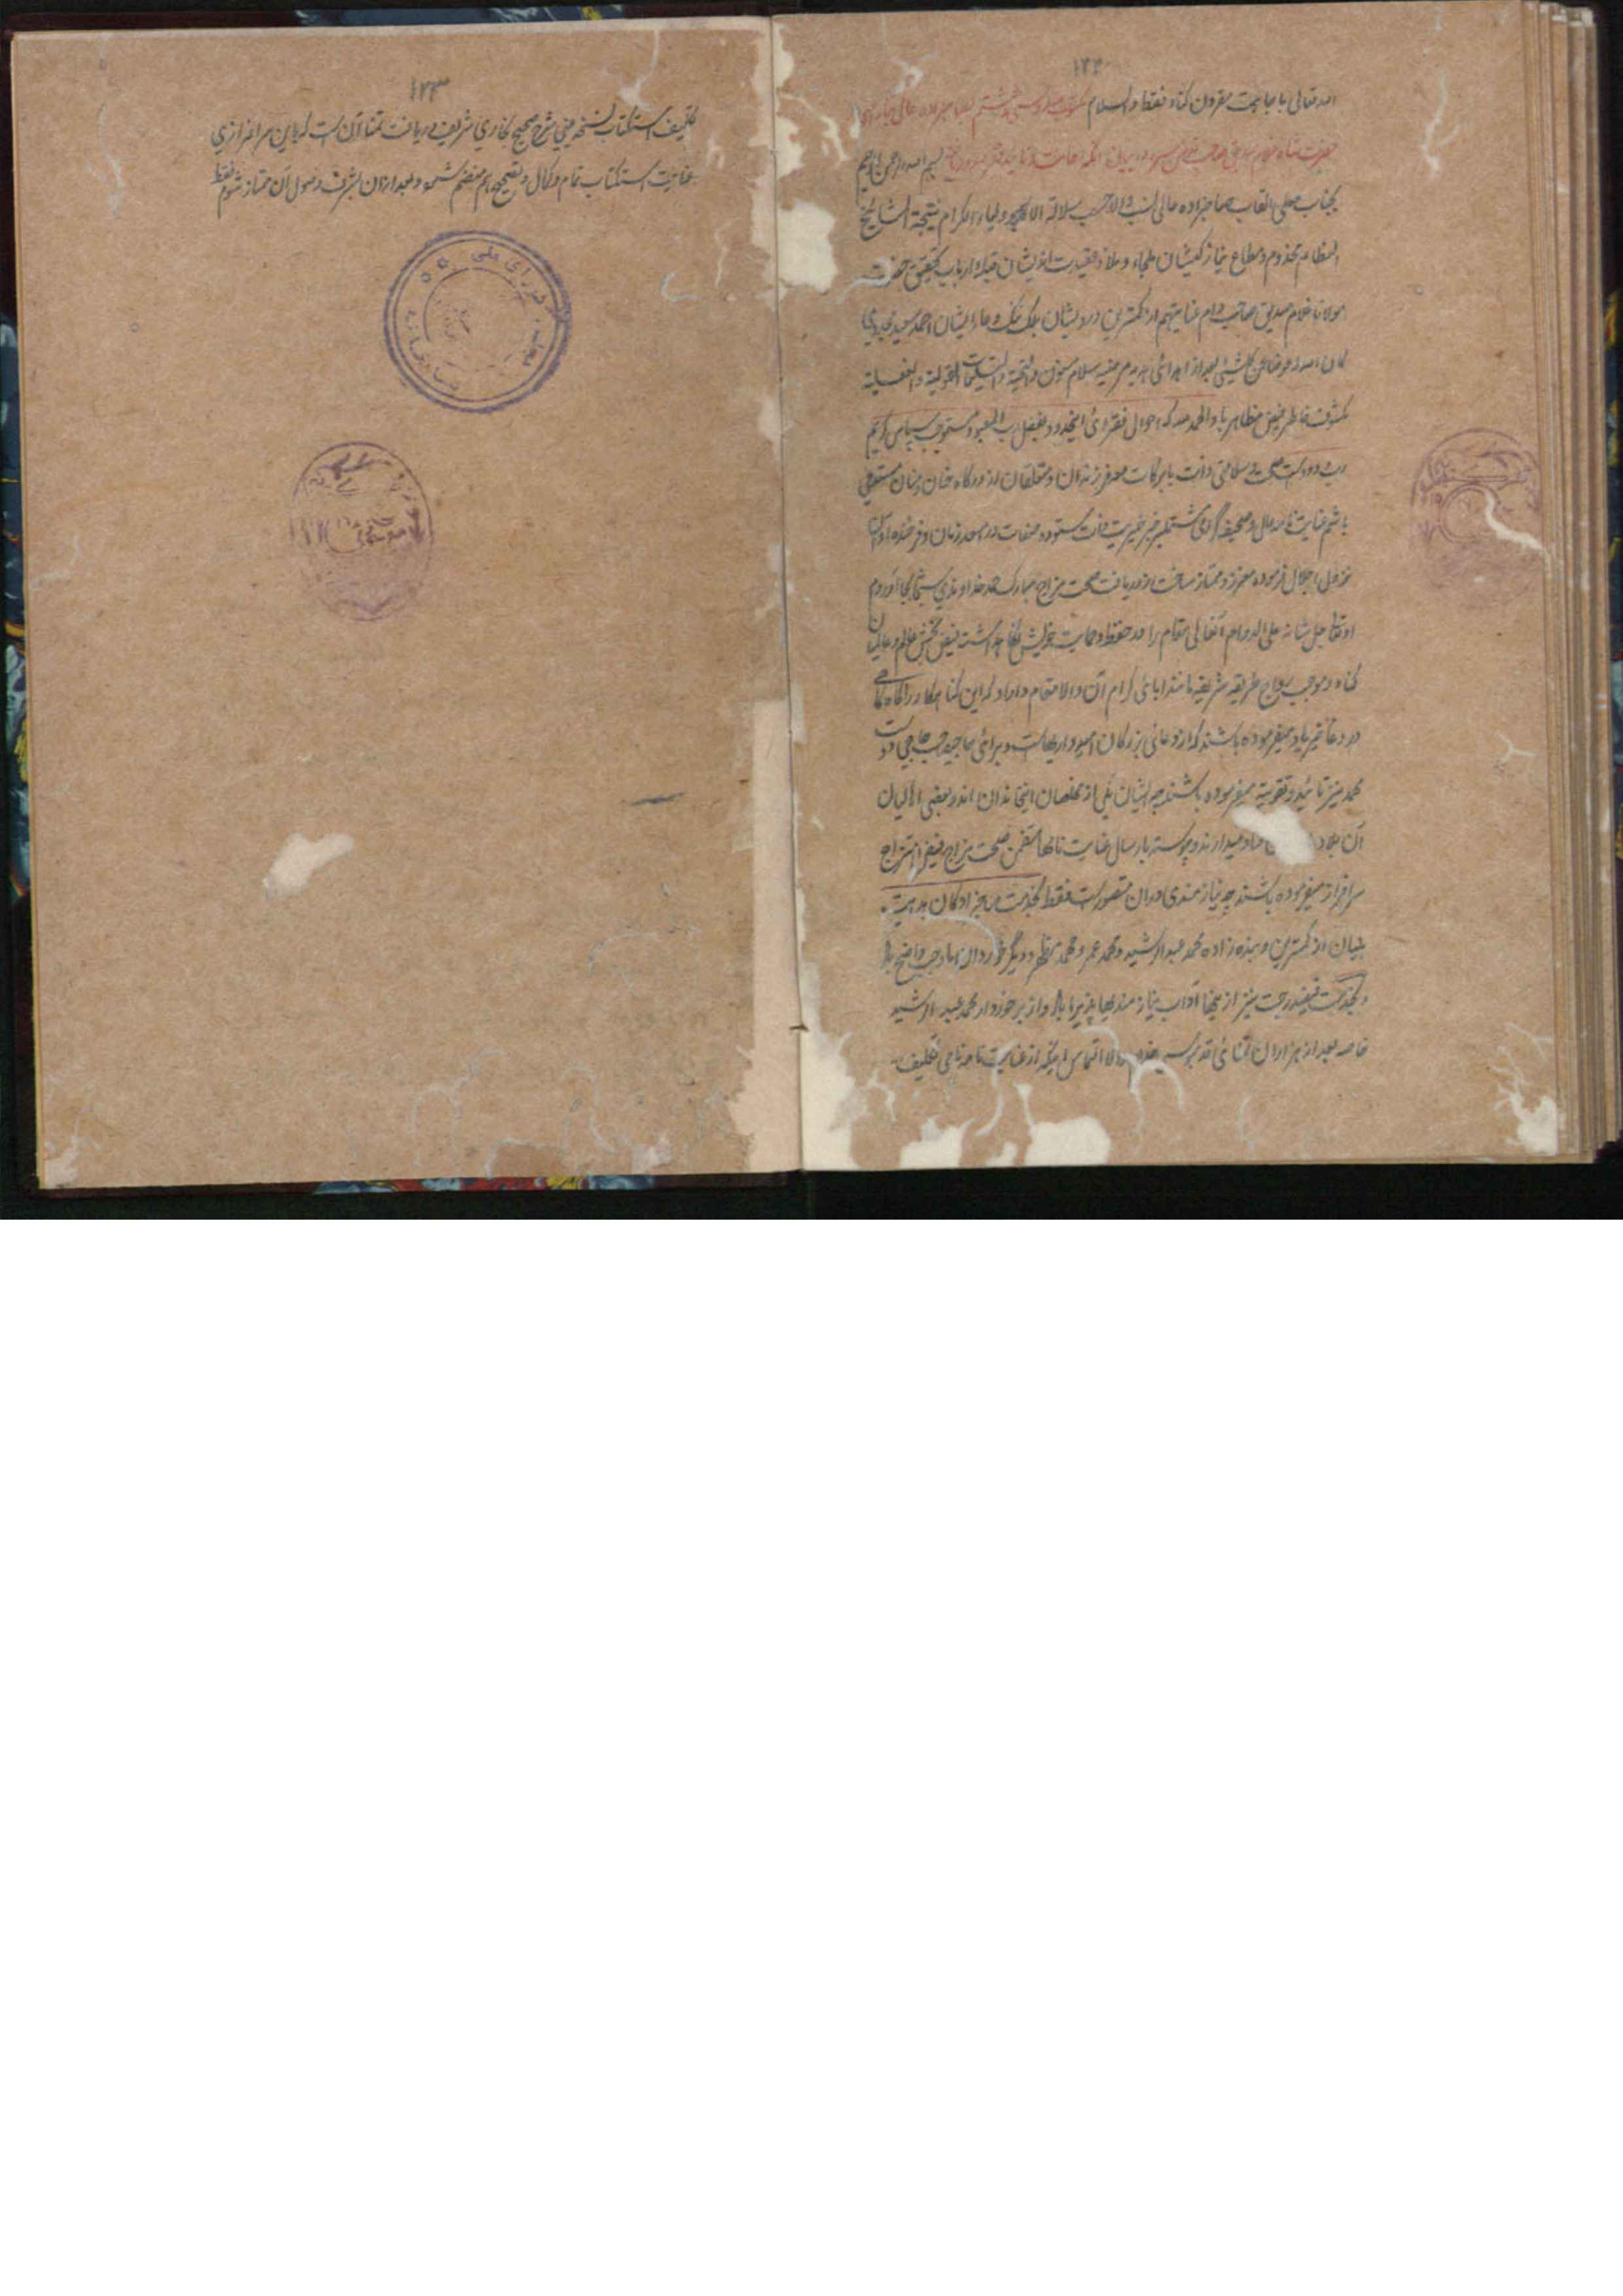 الله تعالی باجابت مقرون کناد فقط والسلام مکتوب صد و سی و هشتم
حضرت شاه غلام صدیق صاحب بسم الله الرحمن الرحیم
بجناب معلی القاب صاحبزاده عالی نسب والا حسب سلالة الاولیاء الکرام نتیجة المشایخ
العظام مخدوم و مطاع نیاز کیشان ملجاء و ملاذ عقیدت اندیشان قبله ارباب تحقیق حضرت
مولانا غلام صدیق صاحب دام عنایتهم از کمترین درویشان بلکه ننگ و عار ایشان احمد سعید مجددی
کان الله له عوضا عن کل شیئ بعد از اهدائی هدیه مرضیه سلام مسنون والتحیة والتسلیمات القولیة والفعلیة
مکشوف خاطر فیض مظاهر باد والحمد لله که احوال فقرای اینحدود بفضل رب المعبود مستوجب سپاس کریم
ودود است صحت و سلامتی ذات با برکات معه فرزندان و متعلقان از درگاه حنان و منان مستدعی
باشم عنایت نامه والا و صحیفه گرامی مشتمل بر خیریت ذات ستوده صفات در اسعد زمان و فرخنده اوان
نزول اجلال فرموده معزز و ممتاز ساخت از دریافت صحت مزاج مبارک حمد خداوندی بجا آوردم
او تعالی جل شانه علی الدوام آنعالی مقام را در حفظ و حمایت خویش نگاه داشته فیض بخش عالم و عالمیان
کناد و موجب رواج طریقه شریفه مانند ابائی کرام آن والامقام داراد که این گناهگار را گاه گاهی
در دعا خیر یاد میفرموده باشند که از دعائی بزرگان امیدواریهاست و برائی حاجی دوست
محمد نیز تائید و تقویت میفرموده باشند چه ایشان یکی از مخلصان اینخاندان اند و بعضی اهالیان
آن بلاد میدارند و پیوسته بارسال عنایت نامها متضمن صحت مزاج فیض امتزاج
سرافراز میفرموده باشند چه نیازمندی در ان متصور است فقط بخدمت صاحبزادگان هدایت
بنیان از کمترین و بنده زاده محمد عبدالرشید و محمد عمر و محمد مظهر و دیگر خوردان ما وجب واضح باد
و بخدمت فیضدرجت نیز از اینجا آداب نیازمندیها پذیرا باد و از برخوردار محمد عبدالرشید
خاصه بعد از هزاران تمنائی قدمبوسی التماس اینکه از عنایت نامه نامی تکلیف
۱۲۳
تکلیف استکتاب نسخه عینی شرح صحیح بخاری شریف دریافت تمنا آن است که باین سرافرازی
عنایت استکتاب تمام و کمال و تصحیح هم منضم شود و بعد ازان بشرف وصول آن ممتاز شوم فقط